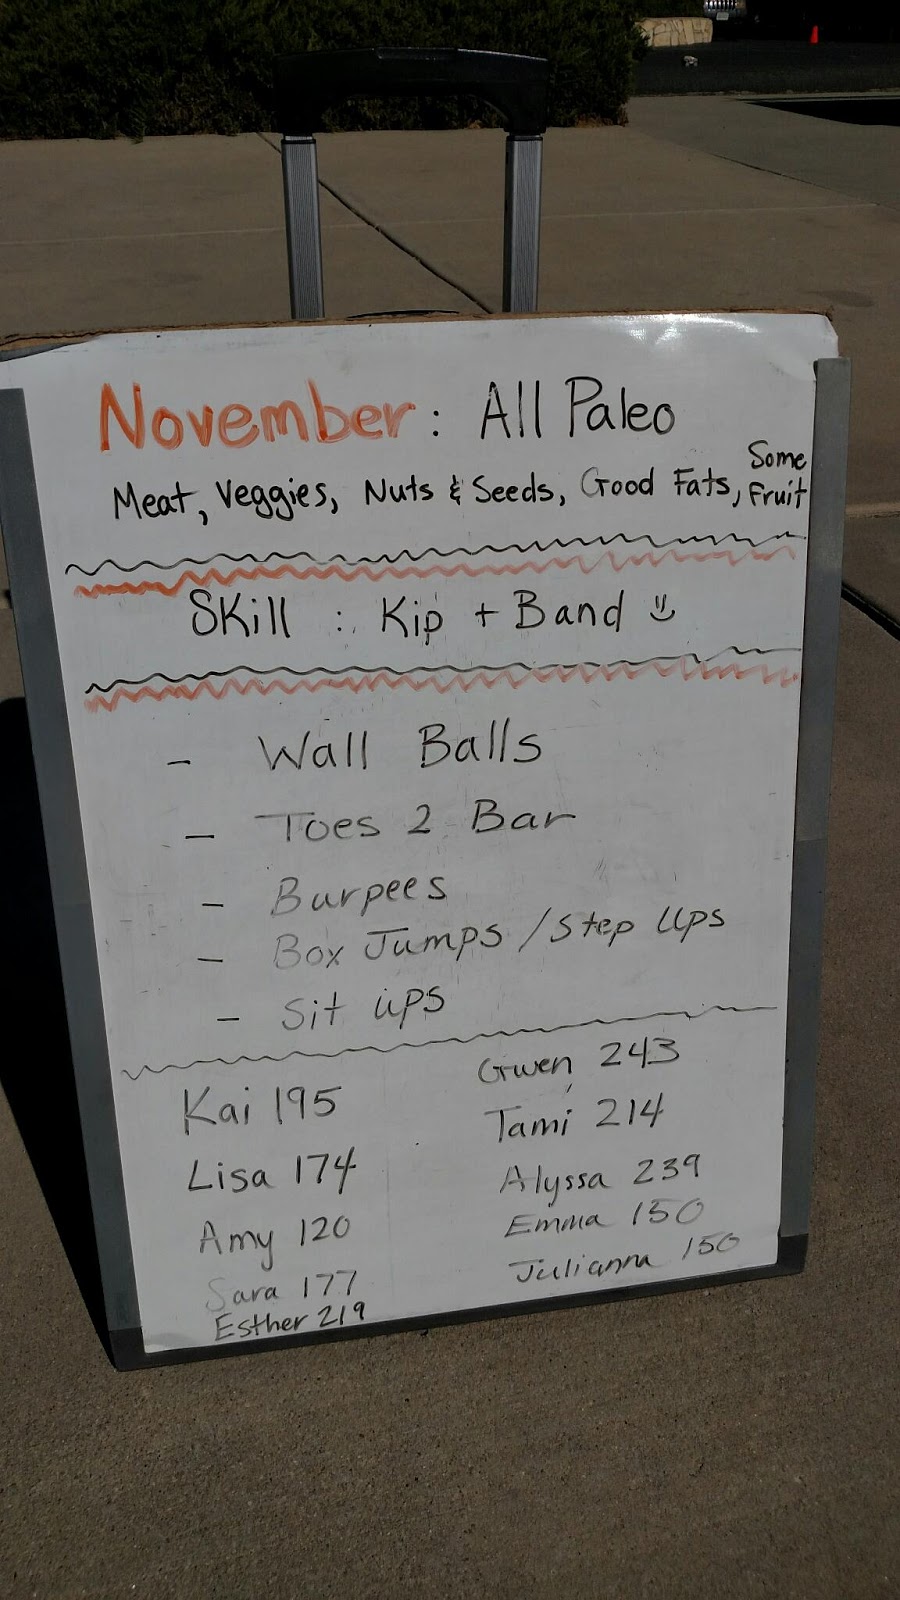 November: All Paleo
Meat, Veggies, Nuts & Seeds, Good Fats, Some Fruit
Skill : Kip + Band
- Wall Balls
- Toes 2 Bar
- Burpees
- Box Jumps / Step Ups
- Sit ups
Kai 195
Lisa 174
Amy 120
Sara 177
Esther 219
Gwen 243
Tami 214
Alyssa 239
Emma 150
Julianna 150